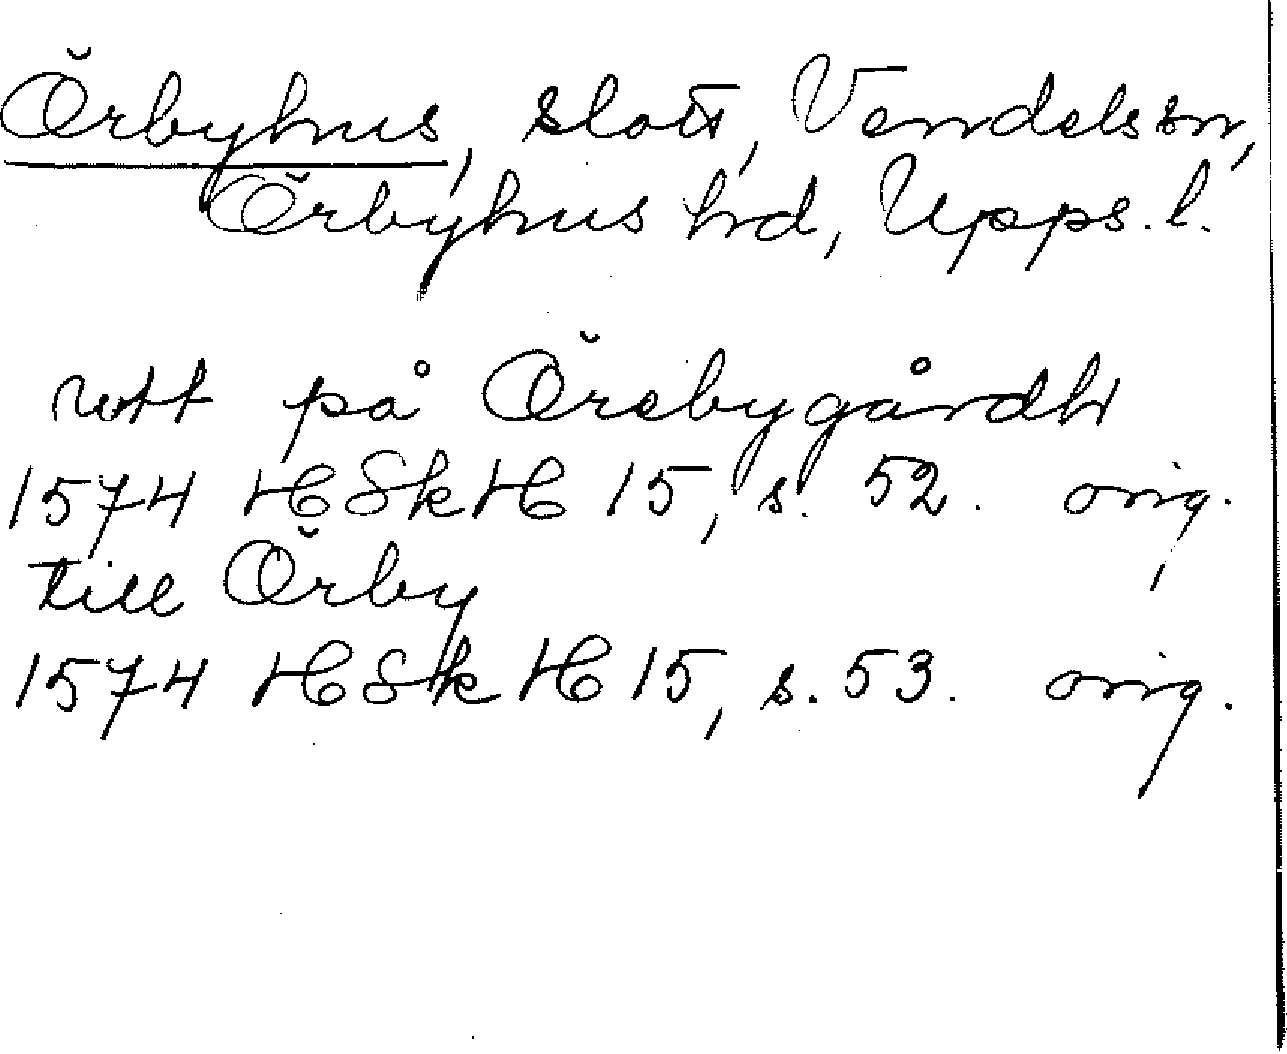 Örbyhus, slott, Vendels sn,
Örbyhus hd, Upps. l.
rott på Örebygårdh
1574 HSkH 15, s. 52. orig.
till Örby
1574 HSkH 15, s. 53. orig.